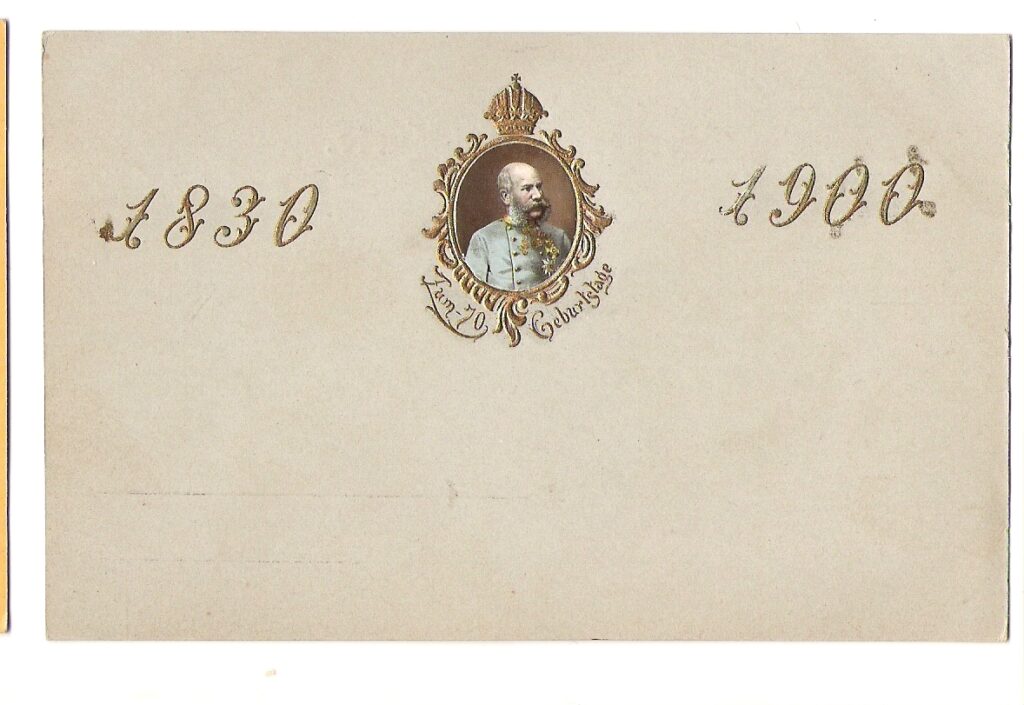 1830
1900
Zum 70 Geburtstage